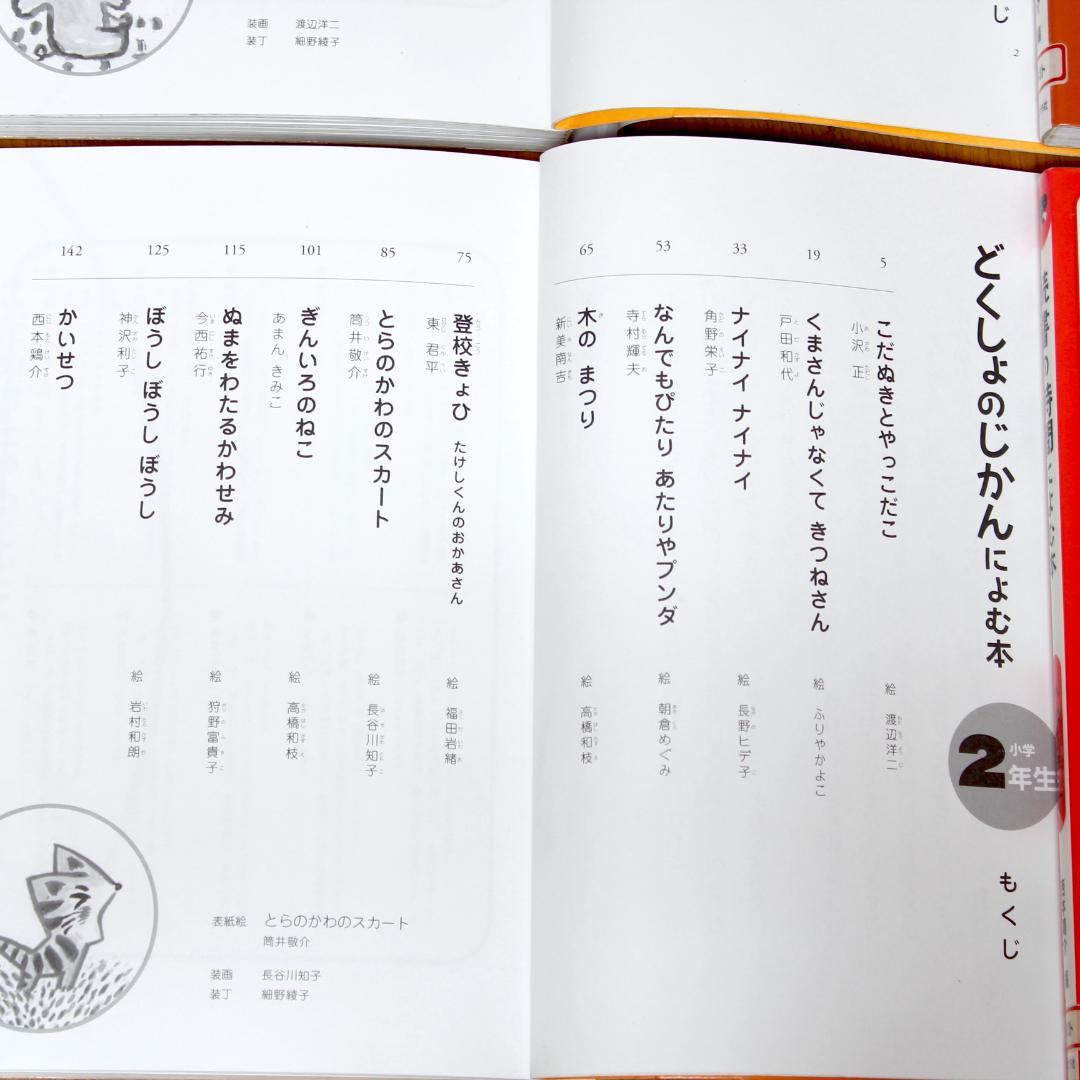 装画 渡辺洋二
装丁 細野綾子
じ
2
どくしょのじかんによむ本
小学
2年生
もくじ
こだぬきとやっこだこ
小沢 正
絵 渡辺洋二
5
くまさんじゃなくて きつねさん
戸田和代
絵 ふりやかよこ
19
ナイナイ ナイナイ
角野栄子
絵 長野ヒデ子
33
なんでもぴたり あたりやプンダ
寺村輝夫
絵 朝倉めぐみ
53
木の まつり
新美南吉
絵 高橋和枝
65
登校きょひ たけしくんのおかあさん
東 君平
絵 福田岩緒
75
とらのかわのスカート
筒井敬介
絵 長谷川知子
85
ぎんいろのねこ
あまん きみこ
絵 高橋和枝
101
ぬまをわたるかわせみ
今西祐行
絵 狩野富貴子
115
ぼうし ぼうし ぼうし
神沢利子
絵 岩村和朗
125
かいせつ
西本鶏介
142
表紙絵 とらのかわのスカート
筒井敬介
装画 長谷川知子
装丁 細野綾子